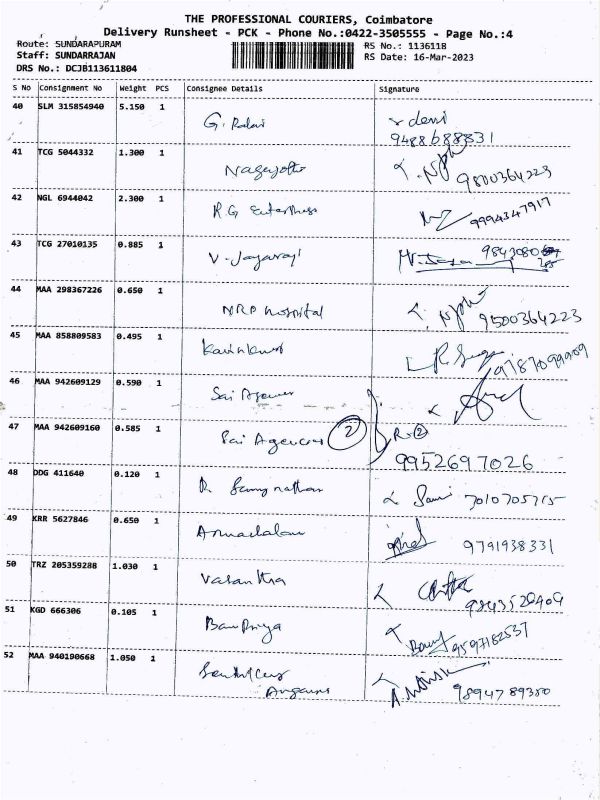 THE PROFESSIONAL COURIERS, Coimbatore
Delivery Runsheet - PCK - Phone No.:0422-3505555 - Page No.:4
Route: SUNDARAPURAM
Staff: SUNDARRAJAN
DRS No.: DCJB113611804
RS No.: 1136118
RS Date: 16-Mar-2023
S No Consignment No Weight PCS Consignee Details Signature
40 SLM 315854940 5.150 1 G.
9488688831
41 TCG 5044332 1.300 1 Nagajothi 9800364223
42 NGL 6944042 2.300 1 R.G Enterprises 9994347917
43 TCG 27010135 0.885 1 V. Jayaraj 9843080
44 MAA 298367226 0.650 1 NRP hospital 9500364223
45 MAA 858809583 0.495 1 9787099909
46 MAA 942609129 0.590 1 Sai Agencies
47 MAA 942609160 0.585 1 Sai Agencies 2 R-2
9952697026
48 DDG 411640 0.120 1 R. 7010705715
49 KRR 5627846 0.650 1 9791938331
50 TRZ 205359288 1.030 1 Vasantha 9843520409
51 KGD 666306 0.105 1 Banupriya 9597182537
52 MAA 940190668 1.050 1 9894789380